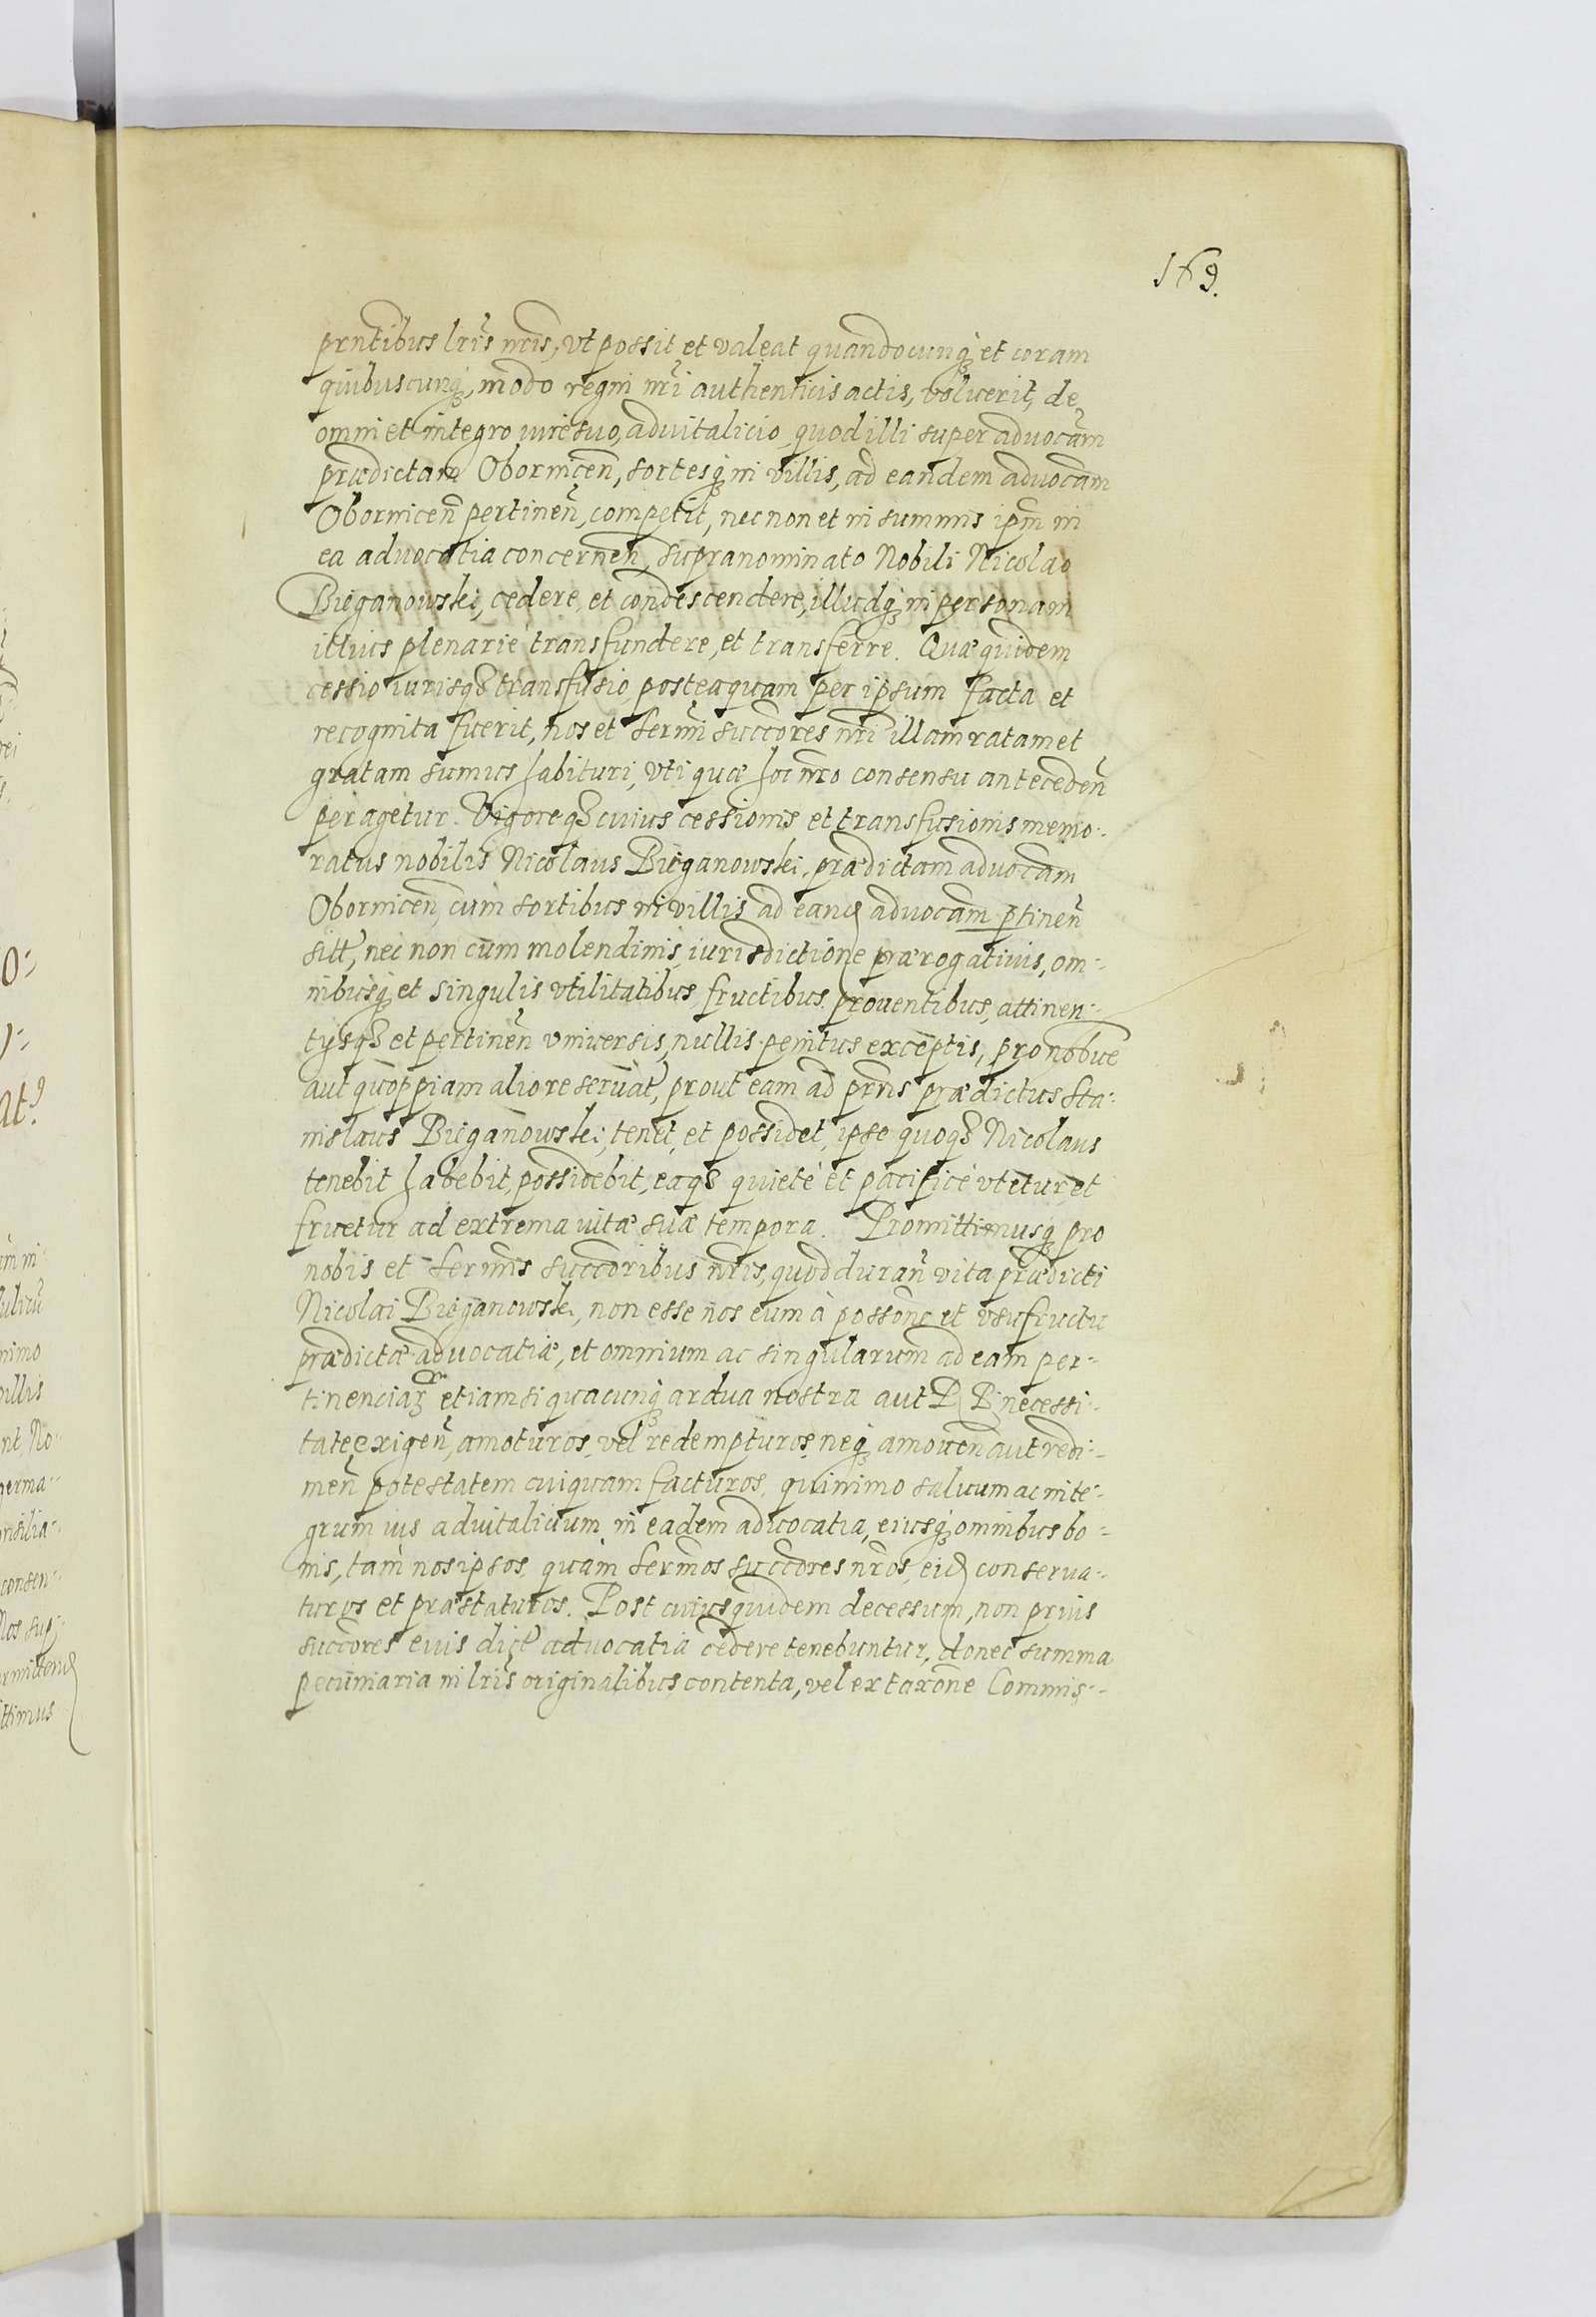 169.
prntibus lris nris, vt possit et valeat quandocunq et coram
quibuscunq, modo regni nri authenticis actis, voluerit, de
omni et integro iure suo, aduitalicio quod illi super aduocam
prædictam Obornicen, sortesq in villis, ad eandem aduocam
Obornicen pertinen, competit, nec non et in summis ipm in
ea aduocatia concernen, supranominato Nobili Nicolao
Bieganowski, cedere et condescendere, illudq in personam
illius plenarie transfundere, et transferre. Quæ quidem
cessio iurisq transfusio posteaquam per ipsum facta et
recognita fuerit, nos et Sermi succores nri illam ratam et
gratam sumus habituri, vti quæ hoc nro consensu anteceden
peragetur. Vigore q cuius cessionis et transfusionis memo-
ratus nobilis Nicolaus Bieganowski prædictam aduocam
Obornicen, cum sortibus in villis ad eand aduocam ptinen
sitt, nec non cum molendinis, iurisdictione prærogatiuis, om-
nibusq et singulis vtilitatibus fructibus prouentibus, attinen-
tijsq et pertinen vniuersis, nullis penitus exceptis, pro nob ue
aut quoppiam alio reseruat, prout eam ad prns prædictus Sta-
nislaus Bieganowski, tenet, et possidet, ipse quoq Nicolaus
tenebit habebit, possidebit, eaq quietè et pacificè vtetur, et
fruetur ad extrema vitæ suæ tempora. Promittimusq pro
nobis et Sermis succoribus nris, quod duran vita prædicti
Nicolai Bieganowski, non esse nos eum à possone et vsufructu
prædictæ aduocatiæ, et omnium ac singularum ad eam per-
tinenciar etiam si quacunq ardua nostra aut R P necessi-
tate exigen, amoturos, vel redempturos, neq amouen aut redi-
men potestatem cuiquam facturos, quinimo saluum ac inte-
grum ius aduitalicium in eadem aduocatia, eiusq omnibus bo-
nis, tam nos ipsos, quàm Sermos succores nros, eid conserua-
turos et præstaturos. Post cuius quidem decessum, non prius
succores euis dict aduocatia cedere tenebuntur, donec summa
pecuniaria in lris originalibus contenta, vel ex taxone Commis-